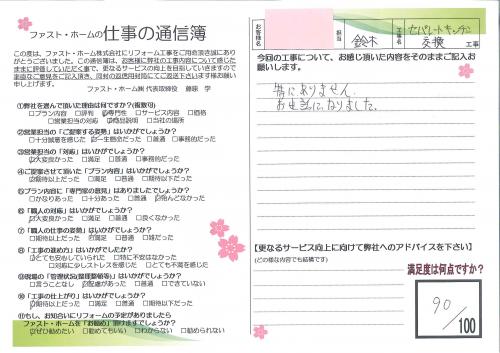 ファスト・ホームの仕事の通信簿
この度は、ファスト・ホーム株式会社にリフォーム工事をご用命頂き誠にあり
がとうございました。この通信簿は、お客様に弊社の工事内容について感じた
ままに評価していただく事で、サービスの向上を目指していきますので
率直なご意見をご記入頂き、同封の返信用封筒にてご返送下さいます様お願い
申し上げます。
ファスト・ホーム㈱ 代表取締役 藤原 学
①弊社を選んで頂いた理由は何ですか？(複数可)
□プラン内容 □評判 ☑専門性 □サービス内容 □価格
□営業担当の対応 ☑商品説明 □当社の場所
②営業担当の「ご提案する姿勢」はいかがでしょうか？
□十分誠意を感じた ☑一生懸命だった □普通 □事務的だった
③営業担当の「対応」はいかがでしょうか？
☑大変良かった □満足 □普通 □事務的だった
④ご提案させて頂いた「プラン内容」はいかがでしたか？
☑期待以上だった □満足 □普通 □期待以下だった
⑤プラン内容に「専門家の意見」はありましたでしょうか？
□かなりあった □十分あった □普通 ☑殆んどなかった
⑥「職人の対応」はいかがでしょうか？
☑大変良かった □満足 □普通 □良くなかった
⑦「職人の仕事の姿勢」はいかがでしょうか？
□期待以上だった ☑満足 □普通 □雑だった
⑧「工事の進め方」はいかがでしたか？
☑とても安心していられた □特に不安はなかった
□対応に少しストレスを感じた □とても不満を感じた
⑨現場の「管理状況(整理整頓等)」はいかがでしょうか？
□言うことなし ☑配慮があった □普通 □できていない
⑩「工事の仕上がり」はいかがでしょうか？
☑期待以上だった □満足 □普通 □期待以下だった
⑪もし、お知合いにリフォームの予定がありましたら
ファスト・ホームを「お勧め」頂けますでしょうか？
☑ぜひ勧めたい □勧めてもいい □わからない □勧められない
お客様名
担当
鈴木
工事名
セパレートキッチン
交換 工事
今回の工事について、お感じ頂いた内容をそのままご記入お
願いします。
特にありません。
お世話になりました。
【更なるサービス向上に向けて弊社へのアドバイスを下さい】
(どの様な内容でも結構です)
満足度は何点ですか？
90
/100